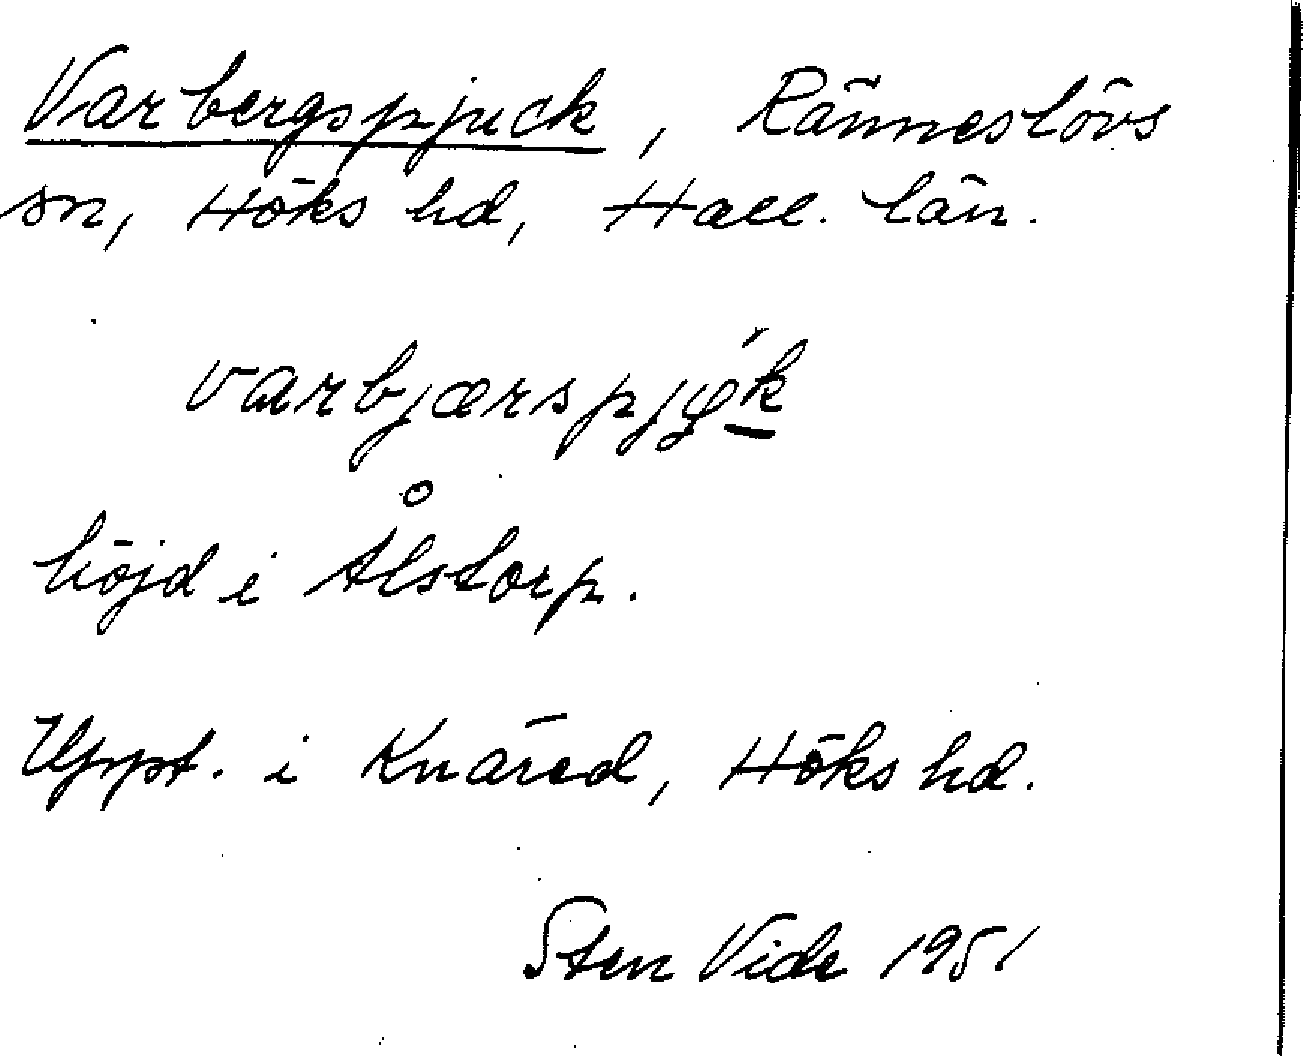 Varbergspjuck, Ränneslövs
sn, Höks hd, Hall. län.
varbjærspjǿ̨k
höjd i Ålstorp.
Uppt. i Knäred, Höks hd.
Sten Vide 1951